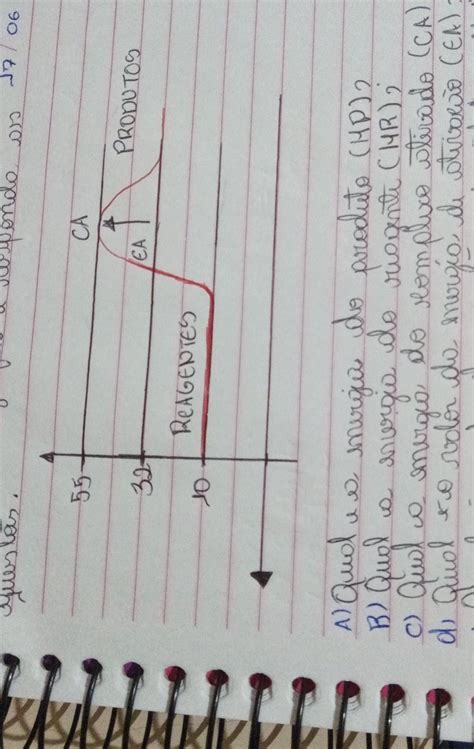 responda
17/06
questão.
CA
PRODUTOS
EA
REAGENTES
55
32
10
A) Qual é a energia do produto (HP);
B) Qual a energia do reagente (HR);
C) Qual a energia do complexo ativado (CA)
d) Qual é o valor da energia de ativação (EA);